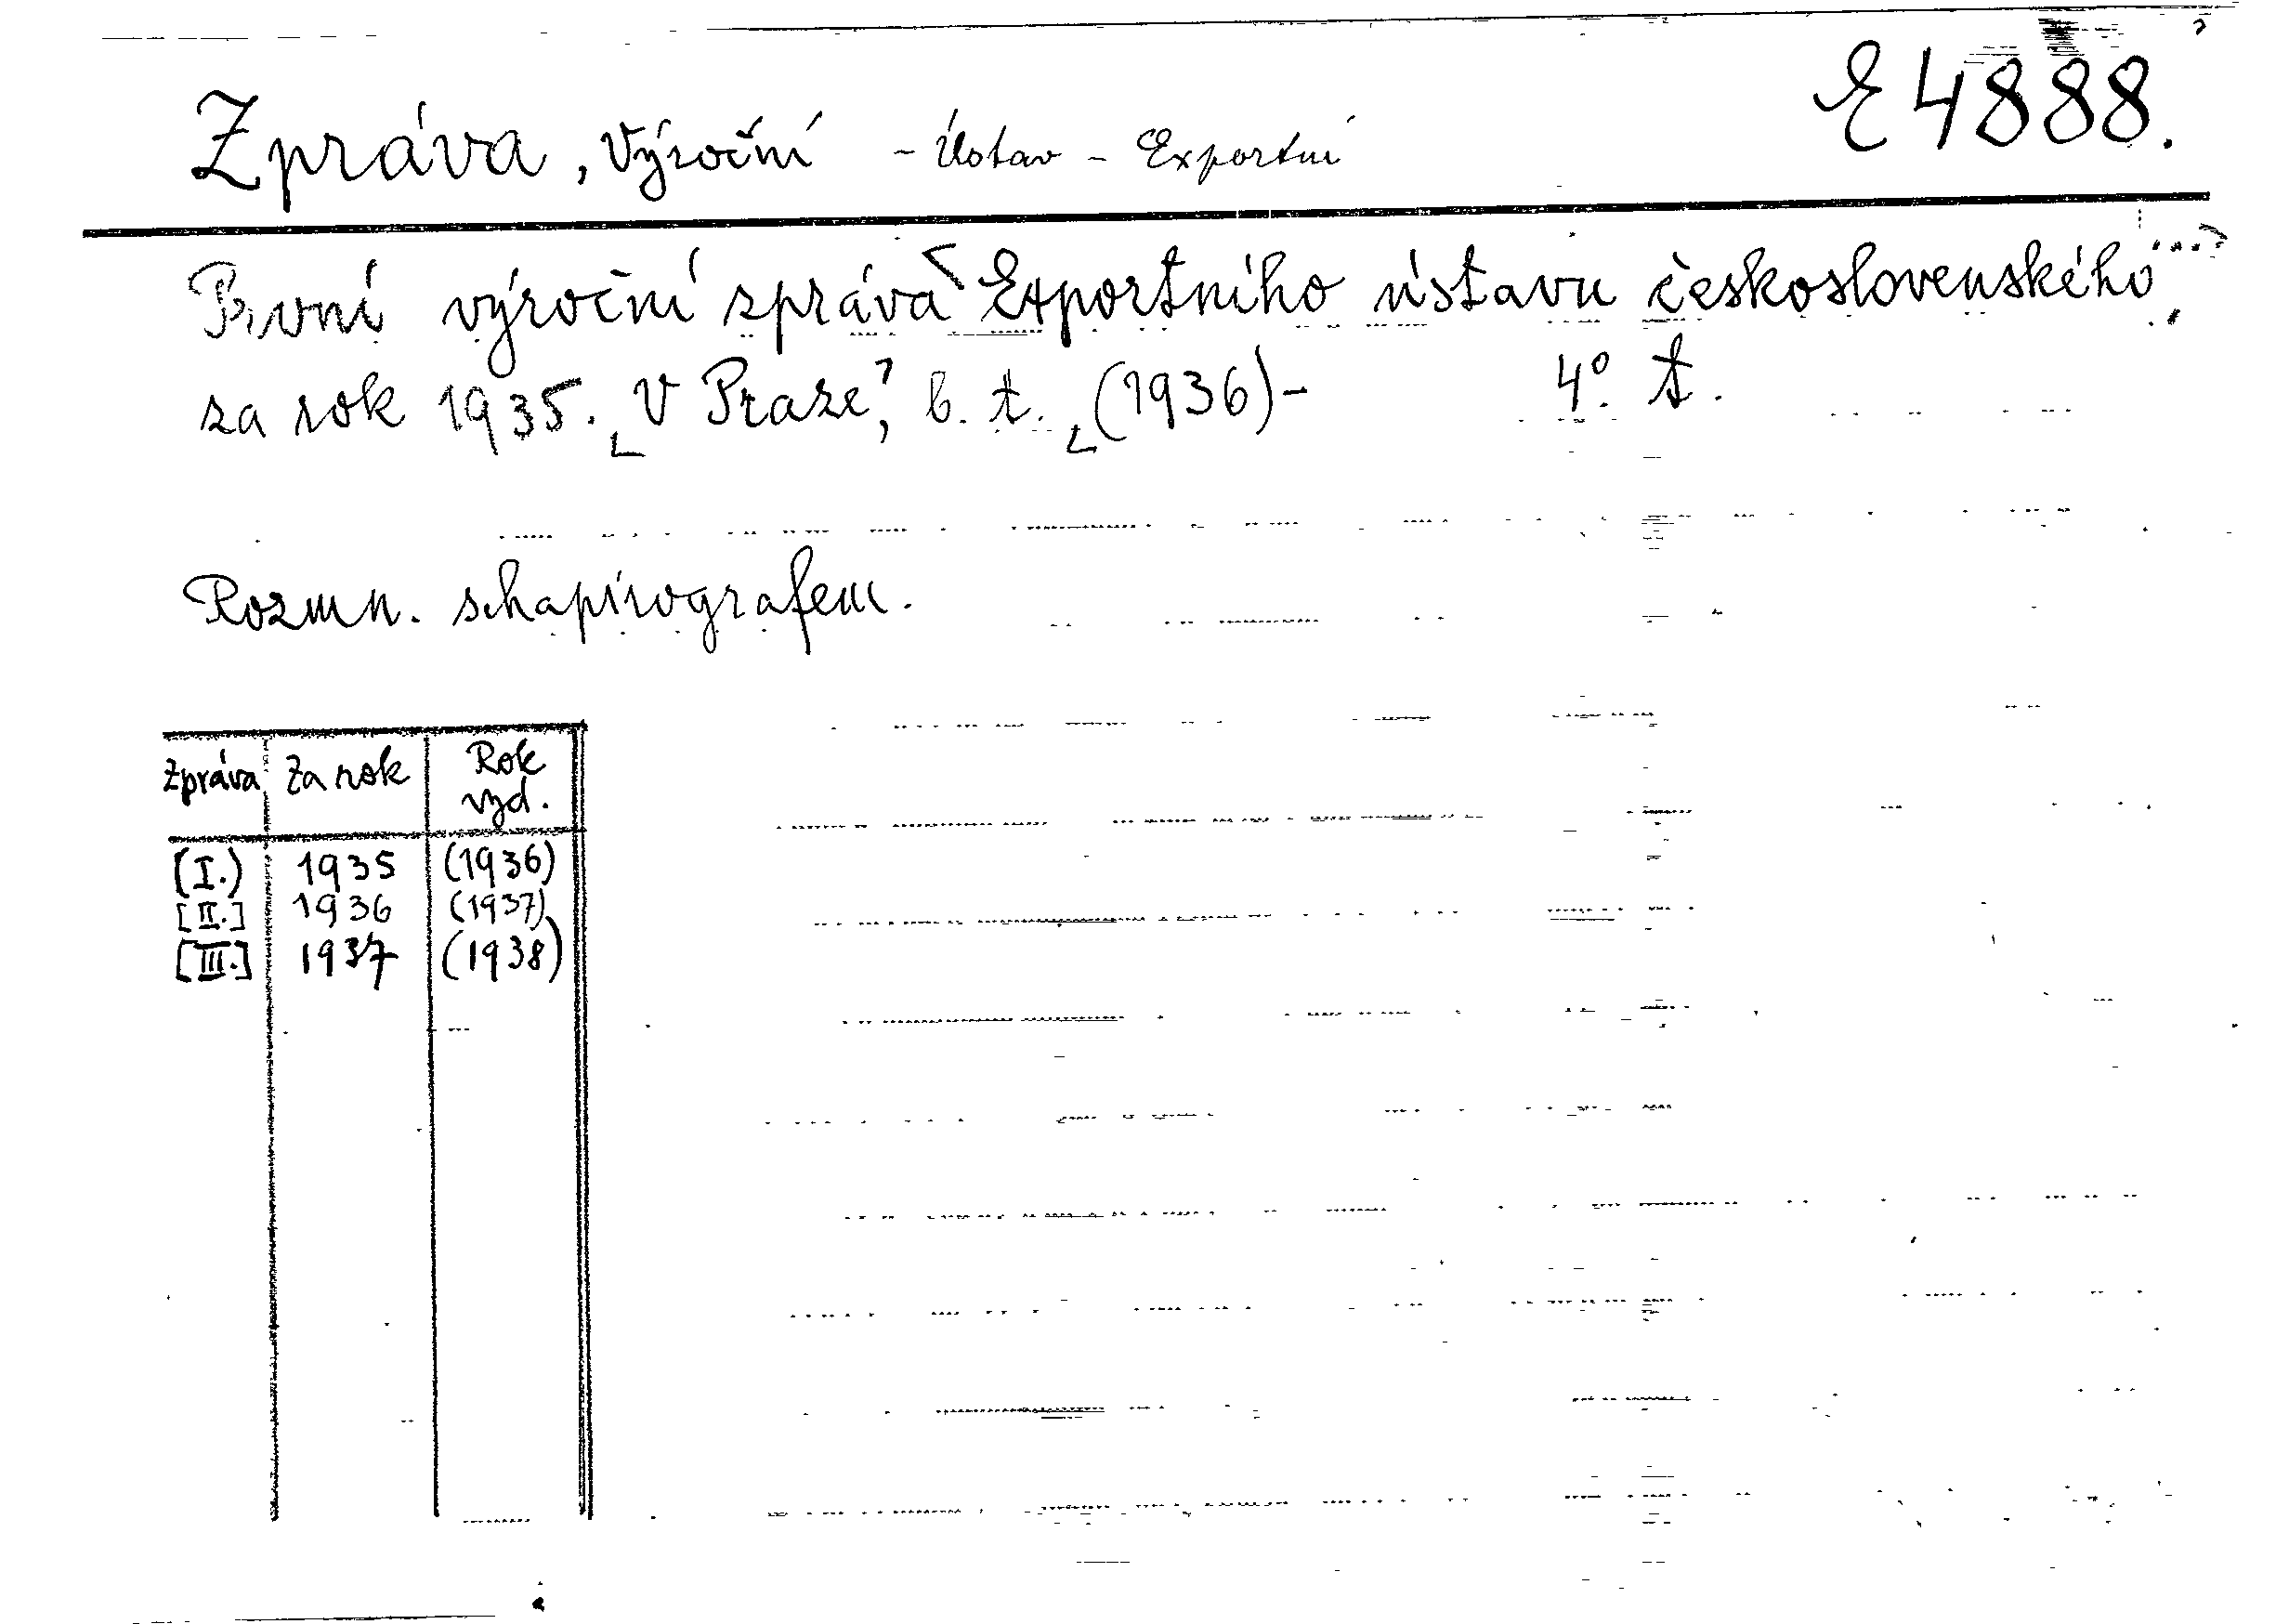 E 4888.
Zpráva, Výroční - Ústav - Exportní
První výroční zpráva Exportního ústavu československého
za rok 1935. V Praze, b. t. (1936)- 4°. t.
Rozmn. schapirografem.
Zpráva Za rok Rok vyd.
(I.) 1935 (1936)
[II.] 1936 (1937)
[III.] 1937 (1938)